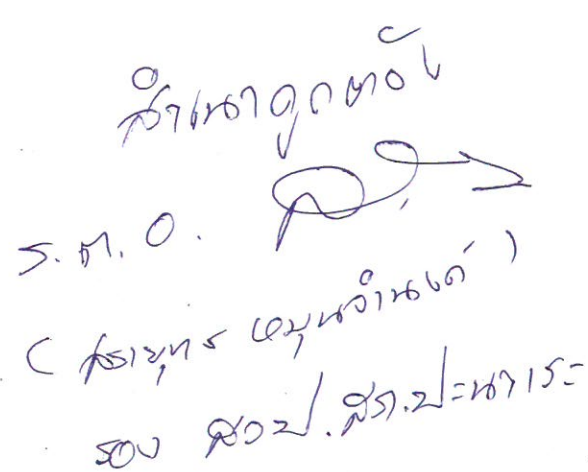 สำเนาถูกต้อง
ร.ต.อ.
(สรายุทธ หมุนจำนงค์)
รอง สวป.สภ.ปะนาเระ